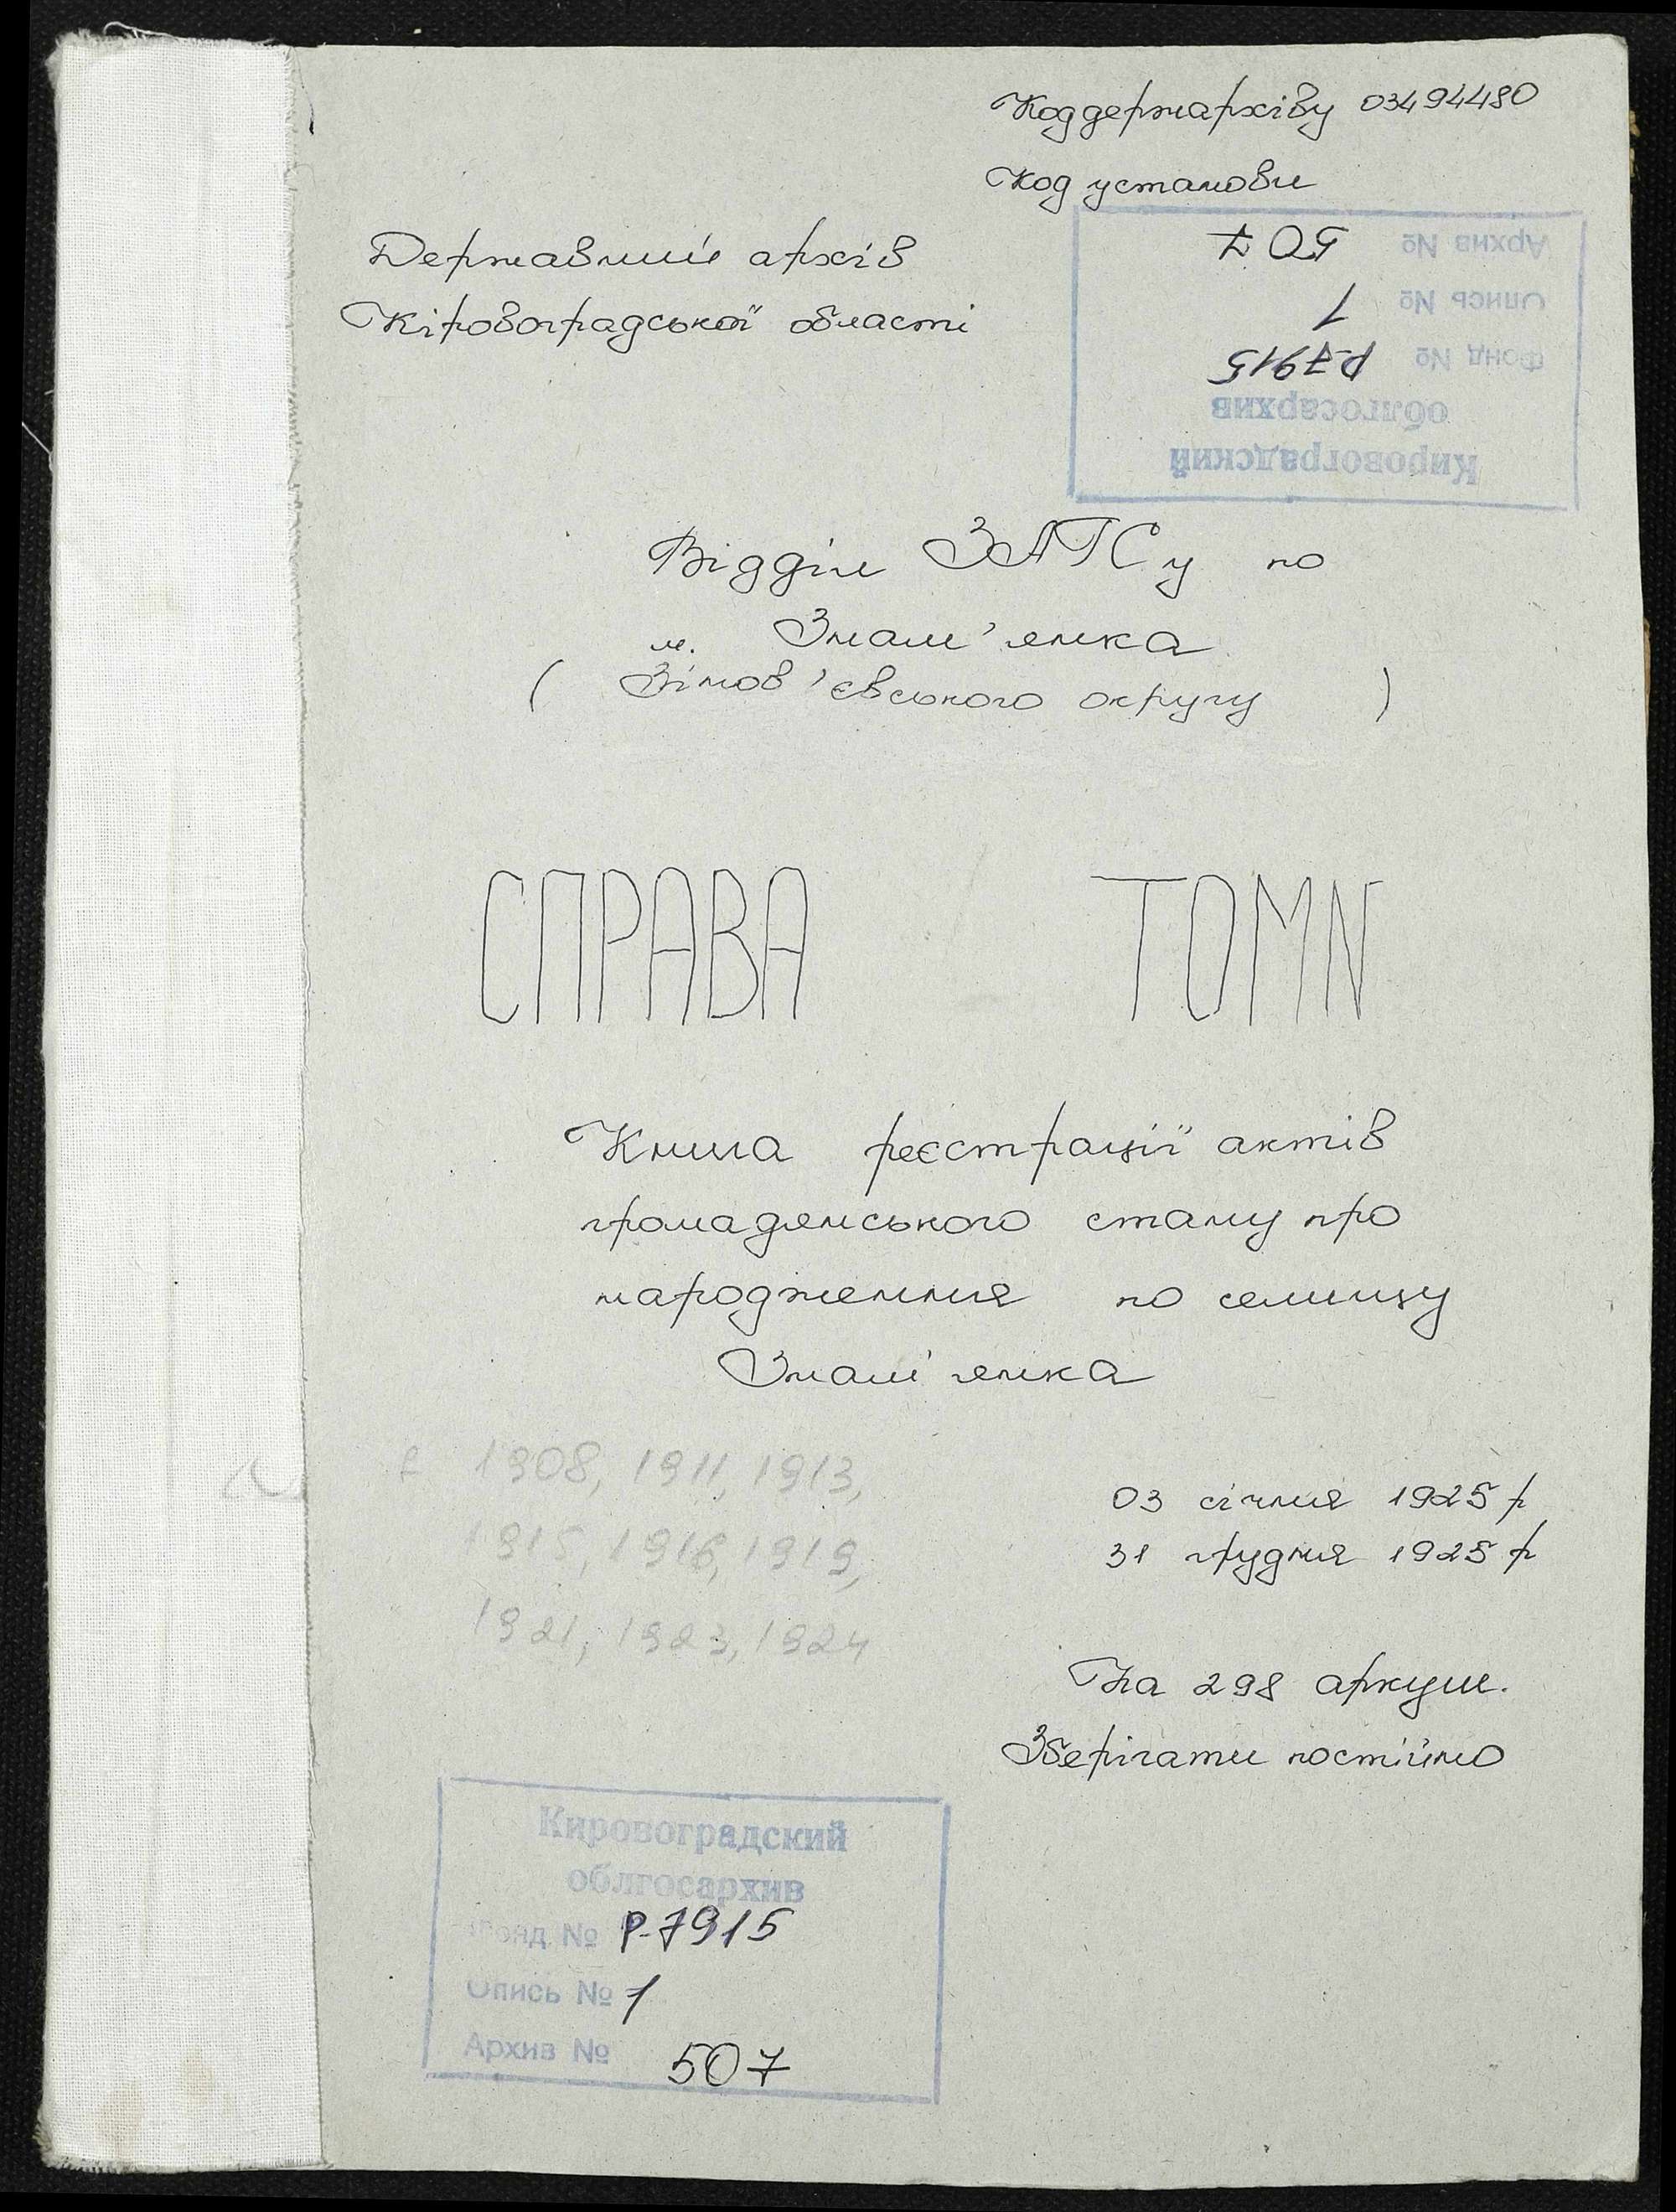 Код держархіву 03494480
Код установи
Державний архів
Кіровоградської області
Кировоградский
облгосархив
Фонд № Р-7915
Опись № 1
Архив № 507
Відділ ЗАГСу по
м. Знам'янка
( Зінов'євського округу )
СПРАВА ТОМN
Книга реєстрації актів
громадянського стану про
народження по селищу
Знам'янка
1908, 1911, 1913,
1915, 1916, 1919,
1921, 1923, 1924
03 січня 1925 р
31 грудня 1925 р
На 298 аркуш.
Зберігати постійно
Кировоградский
облгосархив
Фонд № Р-7915
Опись № 1
Архив № 507